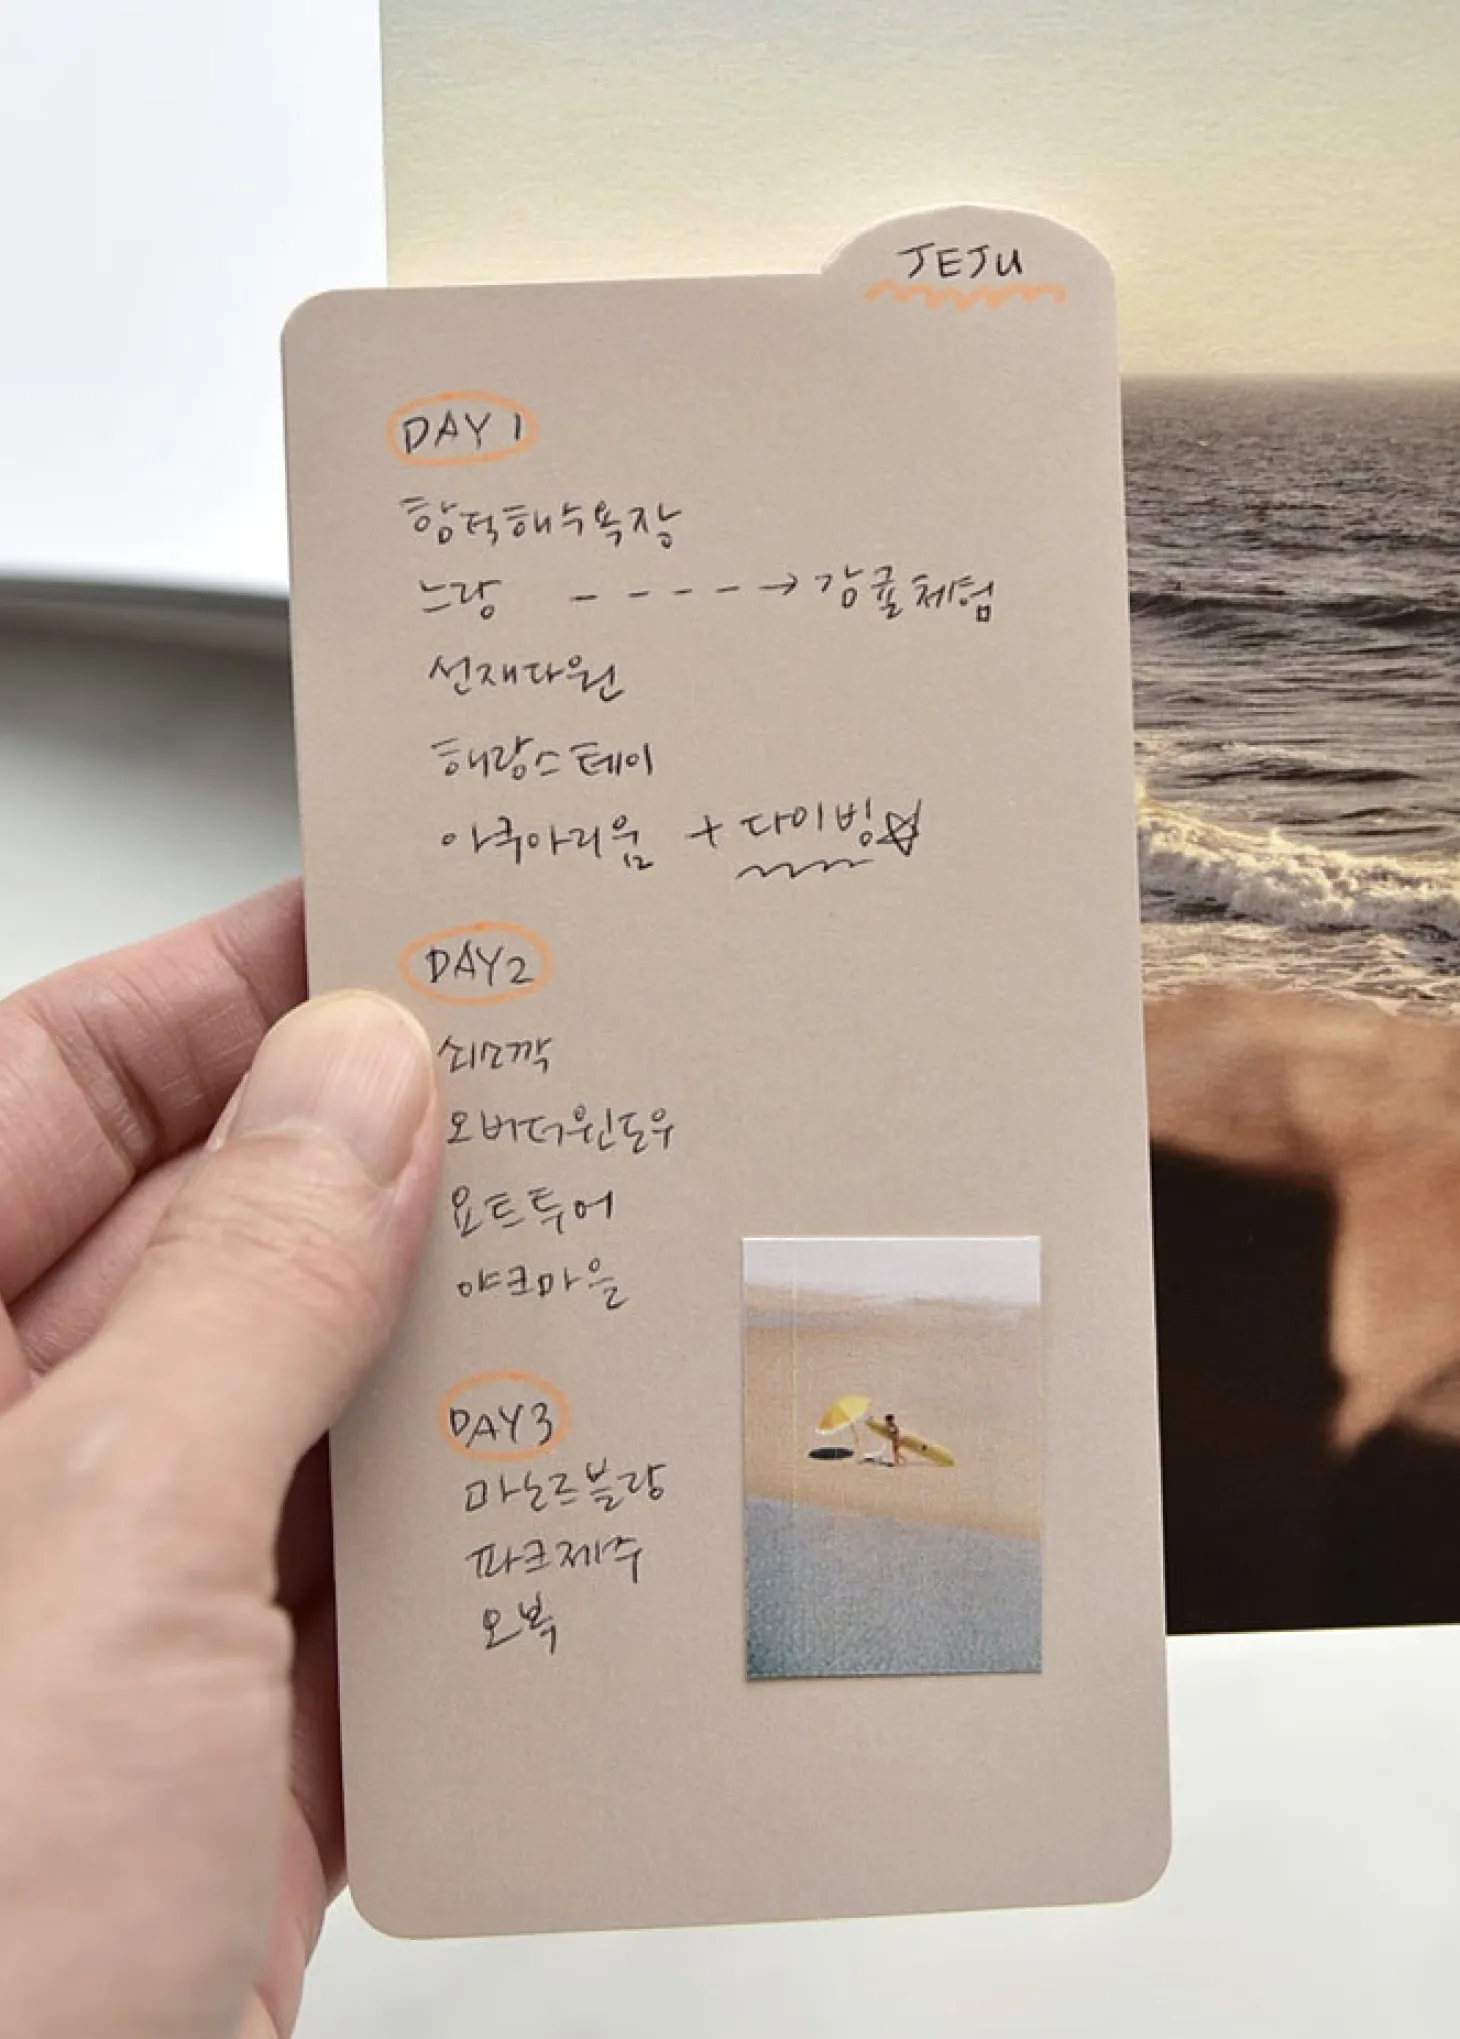 JEJU
DAY 1
함덕해수욕장
느랑 ----→ 감귤체험
선재다원
해랑스테이
아쿠아리움 + 다이빙☆
DAY2
쇠소깍
오버더윈도우
요트투어
야크마을
DAY3
마노르블랑
파크제주
오복